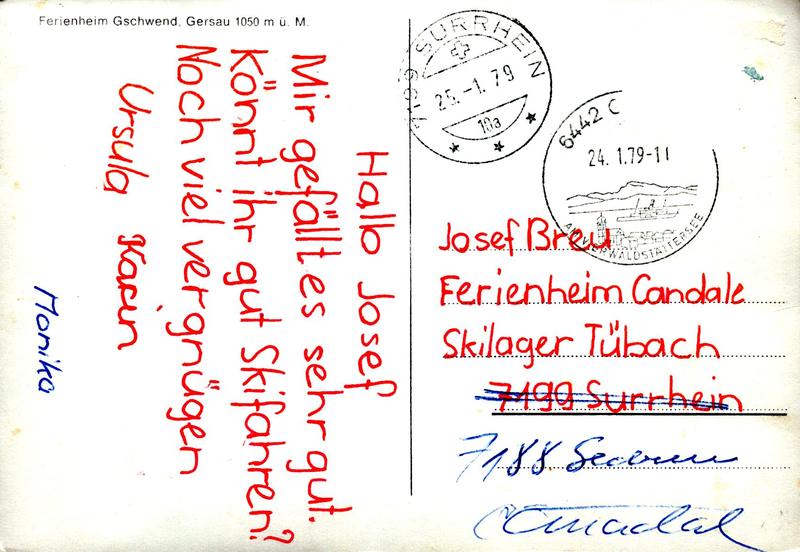 Ferienheim Gschwend, Gersau 1050 m ü. M.
Hallo Josef
Mir gefällt es sehr gut.
Könnt ihr gut Skifahren?
Noch viel vergnügen
Ursula Karin
Monika
7199 SURRHEIN
25.-1.79
10a
6442 G
24.1.79-11
AM VIERWALDSTÄTTERSEE
Josef Breu
Ferienheim Candale
Skilager Tübach
7199 Surrhein
7188 Sedrun